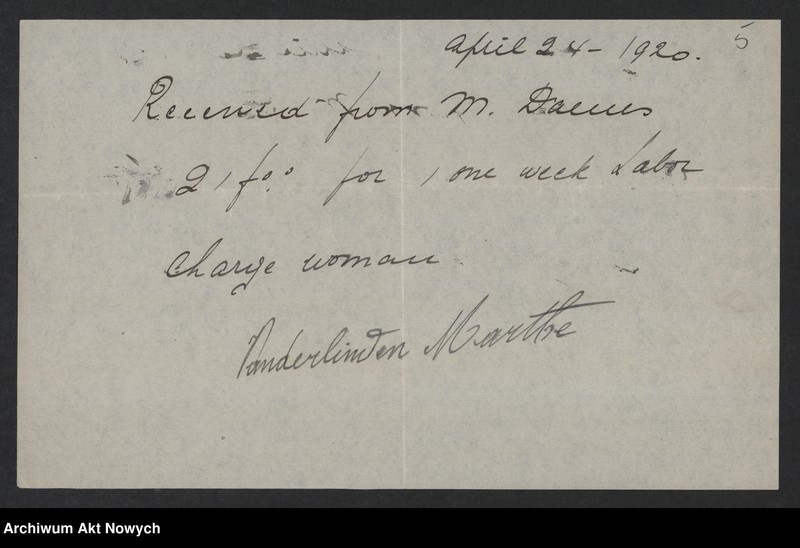 April 24 - 1920. 5
Received from M.
21 f 00 for 1 one week Labor
Charge woman
Vanderlinden Marthe
Archiwum Akt Nowych